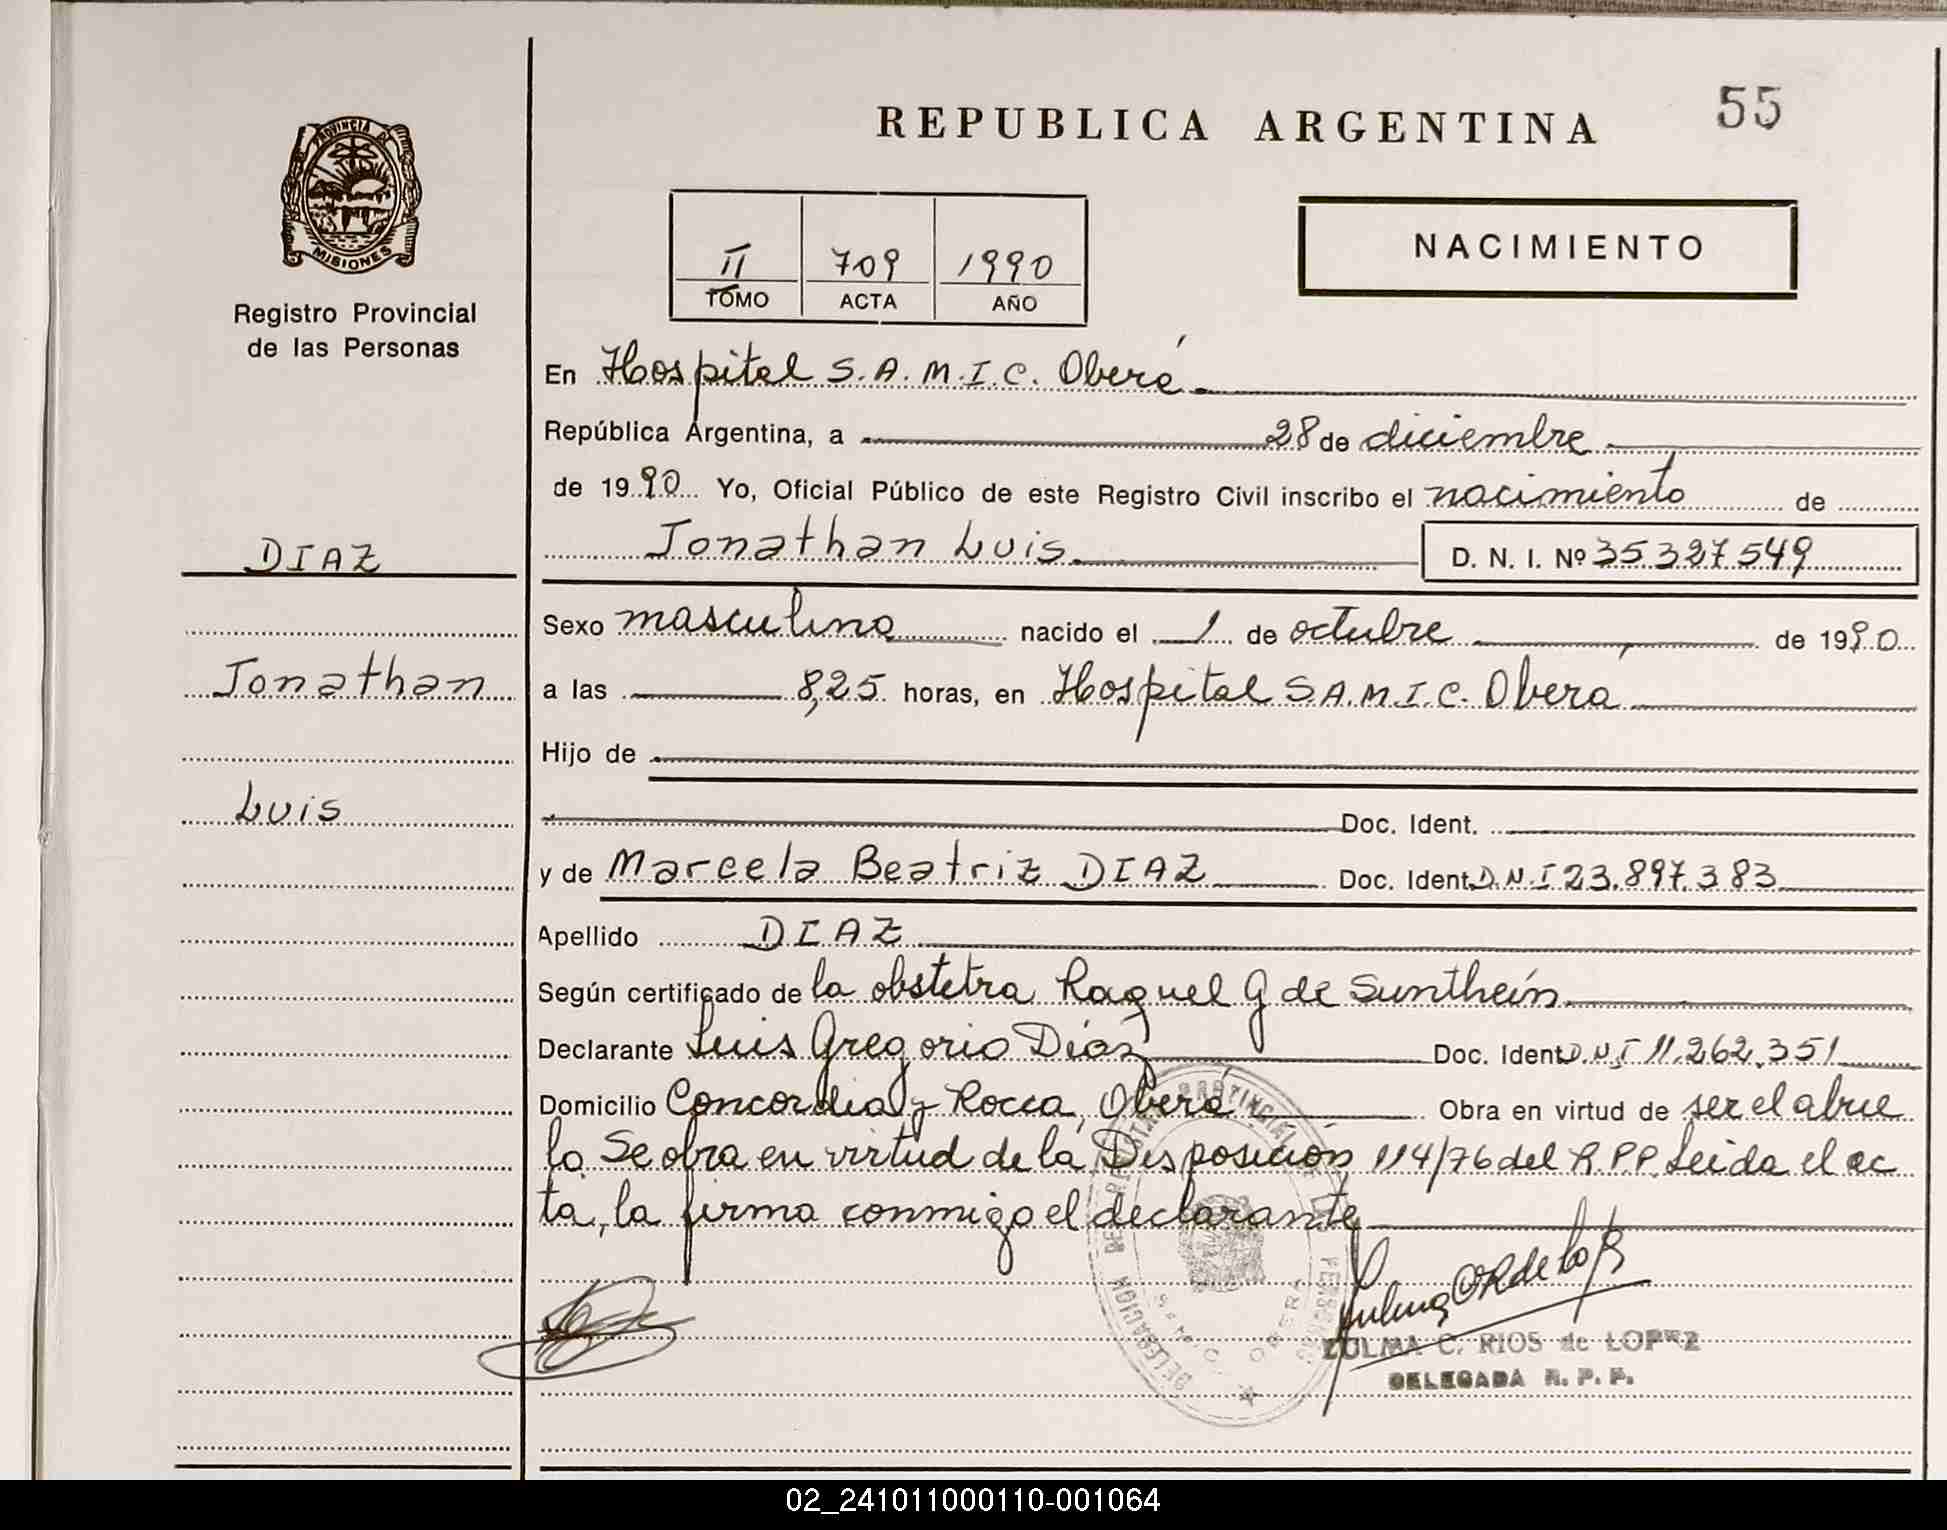 REPUBLICA ARGENTINA
55
PROVINCIA DE
MISIONES
Registro Provincial
de las Personas
II 709 1990
TOMO ACTA AÑO
NACIMIENTO
En Hospital S.A.M.I.C. Oberá
República Argentina, a 28 de diciembre
de 1990 Yo, Oficial Público de este Registro Civil inscribo el nacimiento de
Jonathan Luis D. N. I. Nº 35.327.549
DIAZ
Jonathan
Luis
Sexo masculino nacido el 1 de octubre de 1990
a las 8,25 horas, en Hospital S.A.M.I.C. Oberá
Hijo de
Doc. Ident.
y de Marcela Beatriz DIAZ Doc. Ident. D.N.I 23.897.383
Apellido DIAZ
Según certificado de la obstetra Raquel G de Sunthein
Declarante Luis Gregorio Díaz Doc. Ident. D.N.I 11.262.351
Domicilio Concordia y Rocca, Oberá Obra en virtud de ser el abue
lo Se obra en virtud de la Disposición 114/76 del R.P.P. Leida el ac
ta, la firma conmigo el declarante
DELEGACION
OBERA
ZULMA C. RIOS de LOPEZ
DELEGADA R. P. P.
02_241011000110-001064